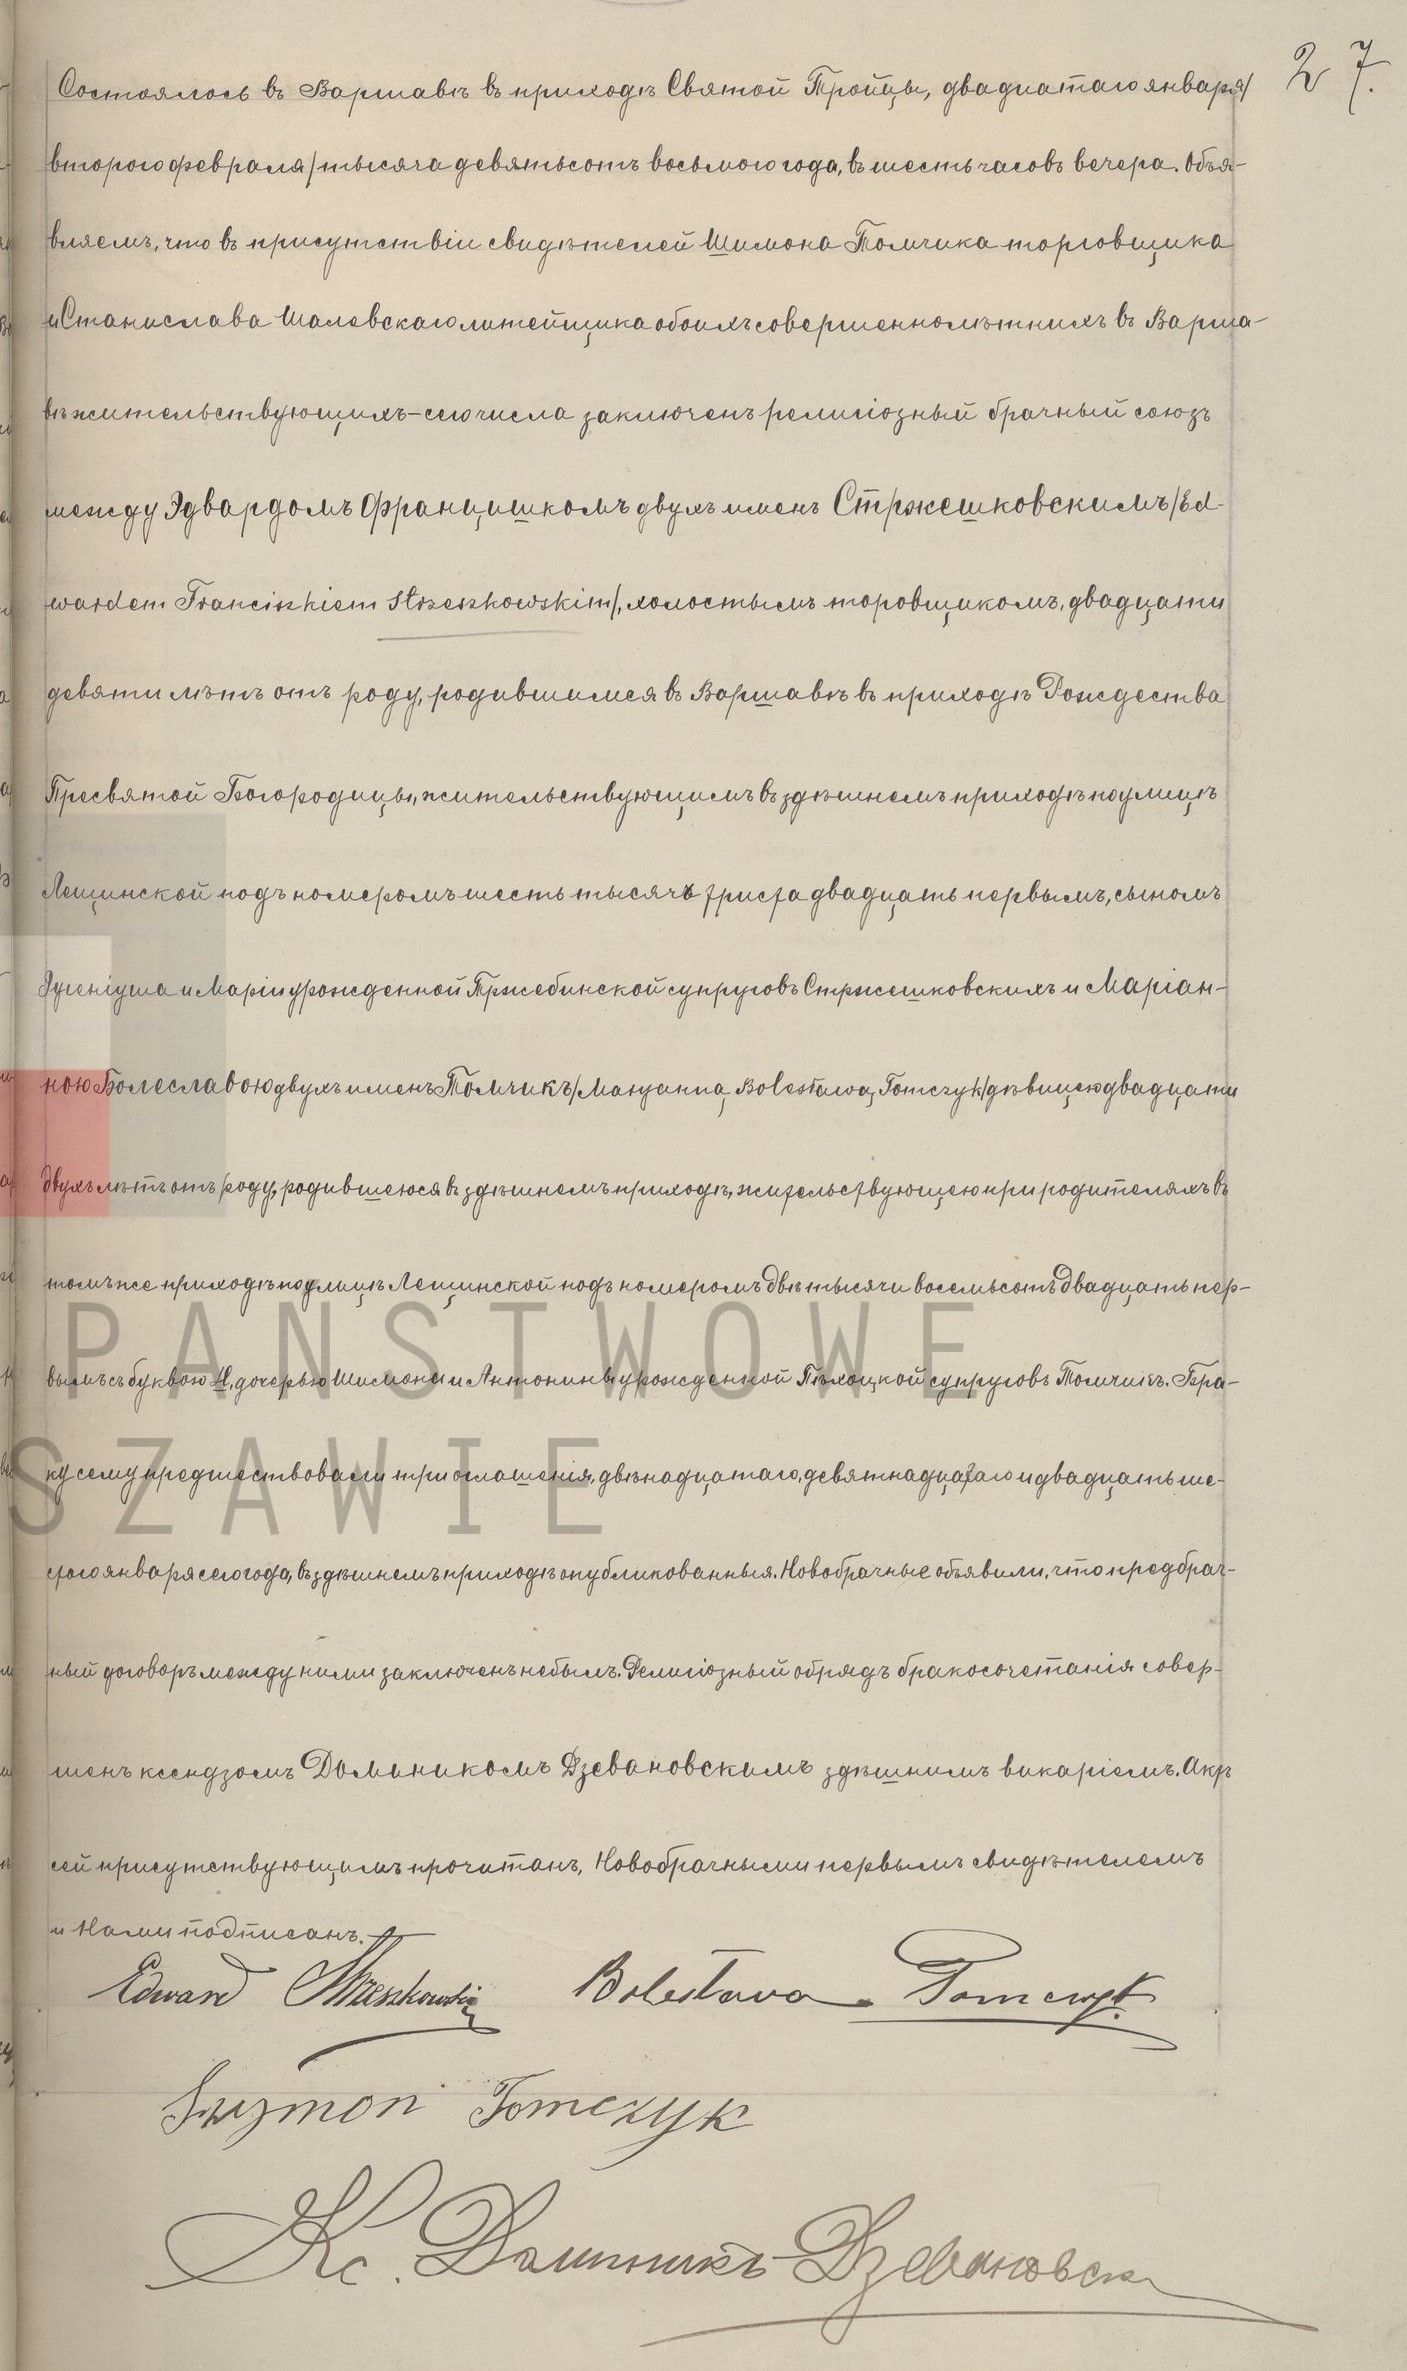 27.
Состоялось въ Варшавѣ въ приходѣ Святой Тройцы, двадцатаго января/
второго февраля/тысяча девятьсотъ восьмого года, въ шесть часовъ вечера. Объя-
вляемъ, что въ присутствіи свидѣтелей Шимона Томчика торговщика
и Станислава Шалевскаго литейщика обоихъ совершеннолѣтнихъ въ Варша-
вѣ жительствующихъ – сего числа заключенъ религіозный брачный союзъ
между Эдвардомъ Францишкомъ двухъ именъ Стржешковскимъ/Ed-
wardem Franciszkiem Strzeszkowskim/, холостымъ торовщикомъ, двадцати
девяти лѣтъ отъ роду, родившимся въ Варшавѣ въ приходѣ Рождества
Пресвятой Богородицы, жительствующимъ въ здѣшнемъ приходѣ по улицѣ
Лещинской подъ номеромъ шесть тысячъ триста двадцать первымъ, сыномъ
Эугеніуша и Маріи урожденной Пржебинской супруговъ Стржешковскихъ и Маріан-
ною Болеславою двухъ именъ Томчикъ/Maryanną Bolesławą Tomczyk/дѣвицею двадцати
двухъ лѣтъ отъ роду, родившеюся въ здѣшнемъ приходѣ, жительствующею при родителяхъ въ
томъ же приходѣ по улицѣ Лещинской подъ номеромъ двѣ тысячи восемьсотъ двадцать пер-
вымъ съ буквою Н, дочерью Шимона и Антонины урожденной Пѣхоцкой супруговъ Томчикъ. Бра-
ку сему предшествовали три оглашенія, двѣнадцатаго, девятнадцатаго и двадцать ше-
стого января сего года, въ здѣшнемъ приходѣ опубликованныя. Новобрачные объявили, что предбрач-
ный договоръ между ними заключенъ не былъ. Религіозный обрядъ бракосочетанія совер-
шенъ ксендзомъ Доминикомъ Дзевановскимъ здѣшнимъ викаріемъ. Актъ
сей присутствующимъ прочитанъ, Новобрачными первымъ свидѣтелемъ
и Нами подписанъ.
Edward Strzeszkowski Bolesława Tomczyk.
Szymon Tomczyk
Кс. Доминикъ Дзевановски
PAŃSTWOWE
SZAWIE